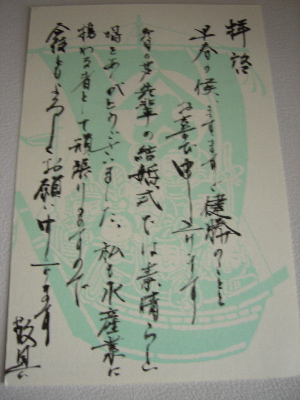 拝啓
早春の候、ますますご健勝のことと
お喜び申し上げます
先輩の結婚式では素晴らしい
場をありがとうございました。私も水産業に
携わる者として頑張りますので
今後ともよろしくお願い申し上げます
敬具